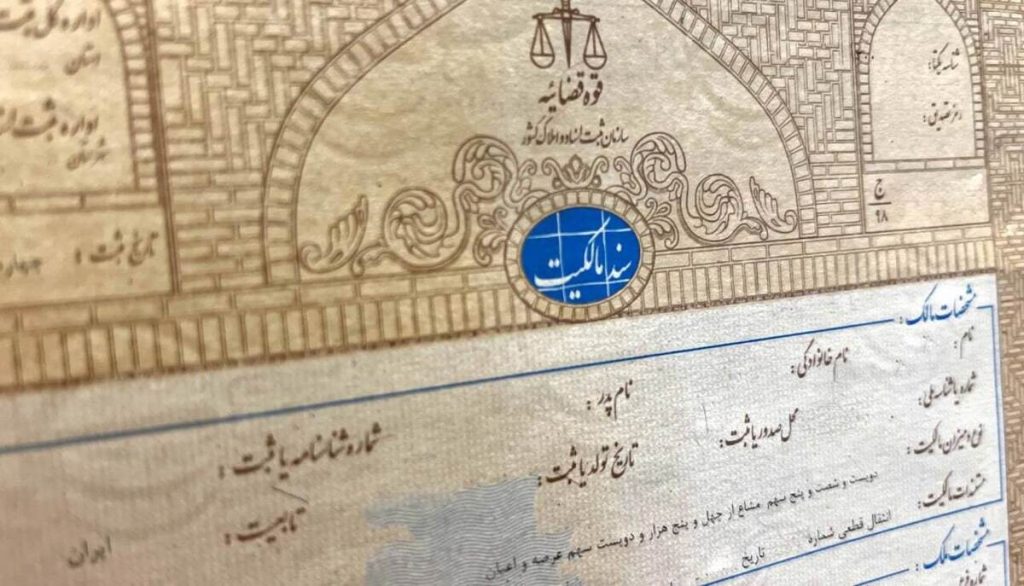 اداره کل ثبت
استان
اداره ثبت
شهرستان
تاریخ ثبت :
قوه قضائیه
سازمان ثبت اسناد و املاک کشور
شناسه یکتا :
رمز تصدیق :
ج
۹۸
سند مالکیت
مشخصات مالک :
نام :
نام خانوادگی :
نام پدر :
شماره شناسنامه یا ثبت :
شماره یا شناسه ملی :
محل صدور یا ثبت :
تاریخ تولد یا ثبت :
تابعیت :
ایران
نوع و میزان مالکیت :
دویست و شصت و پنج سهم مشاع از چهل و پنج هزار و دویست سهم عرصه و اعیان
مستندات مالکیت :
انتقال قطعی شماره
تاریخ
مشخصات ملک :